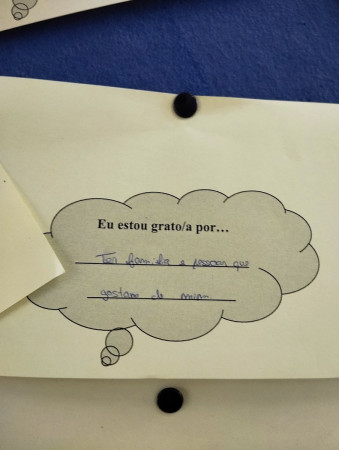 Eu estou grato/a por...
Ter família e pessoas que
gostam de mim